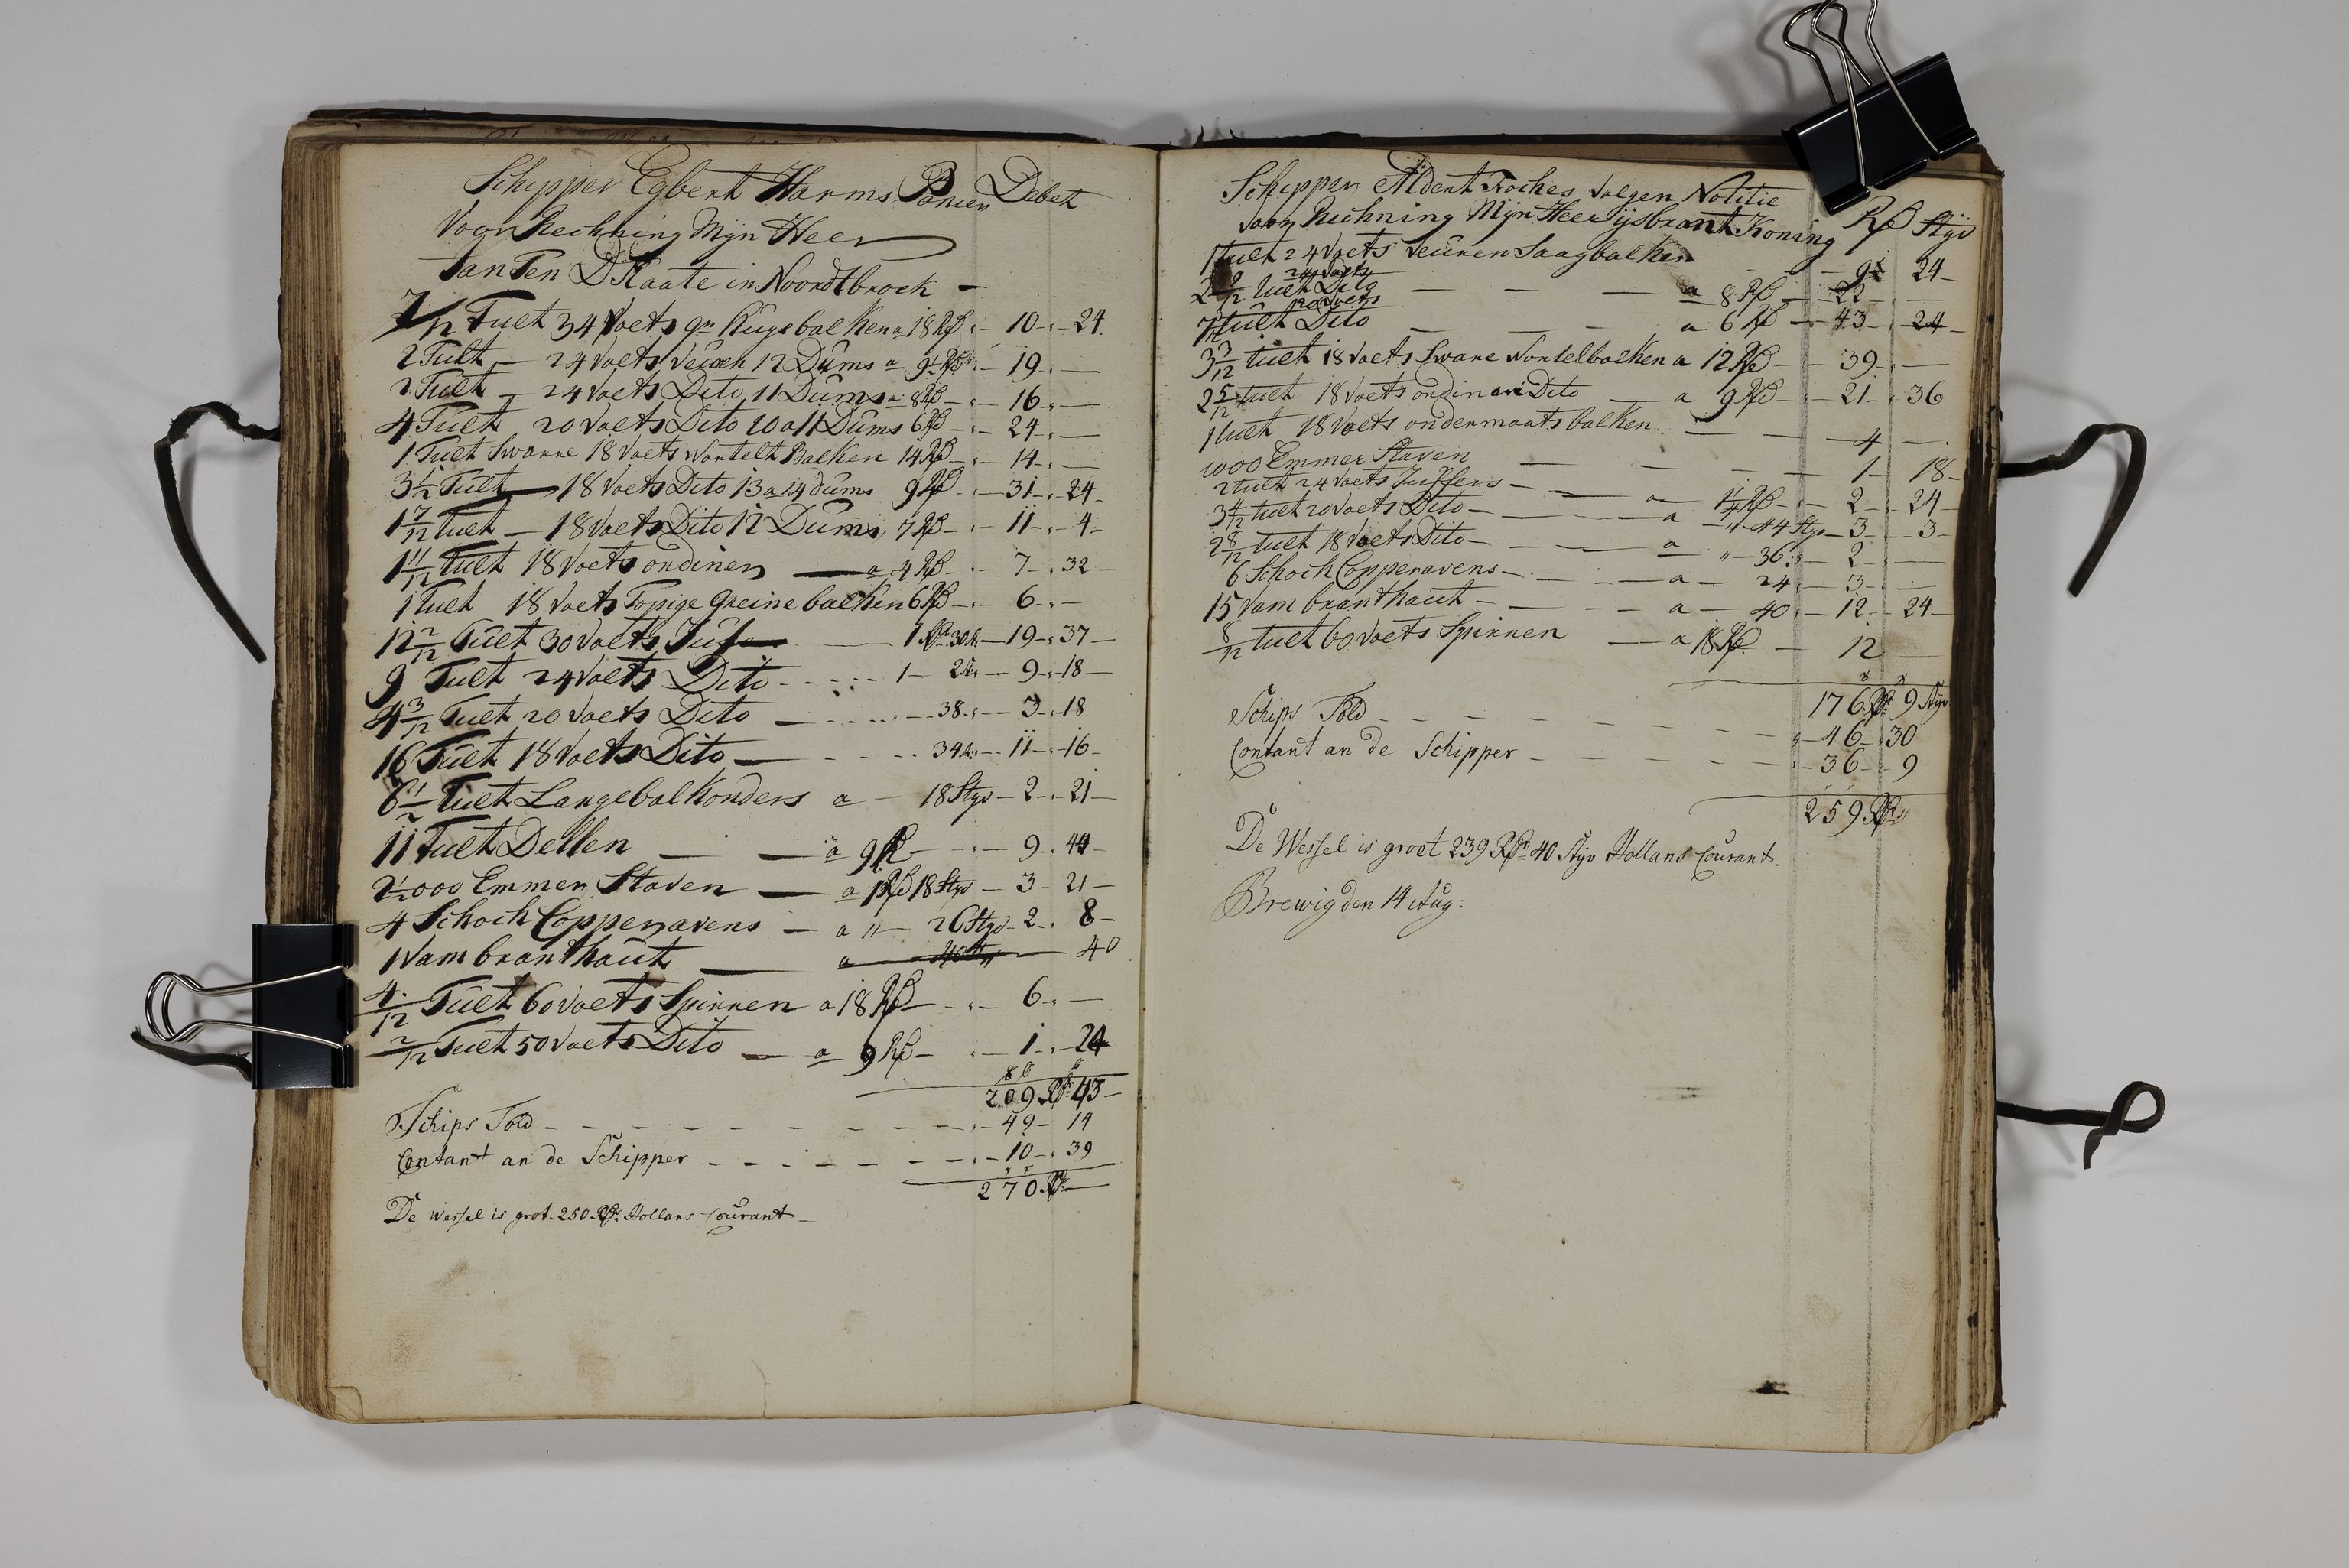 Schipper Egbert Harms Debet
Voor Rechning Mijn Heer
Jan Ten D Kaate in Noordtbrock —
7/12 Tuelt 34 Voets balken a 18 Rd 10 24
2 Tuelt — 24 Voets 12 Dums a 9½ Rd 19 —
2 Tuelt — 24 Voets Dito 11 Dums a 8 Rd 16 —
4 Tuelt 20 Voets Dito 10 a 11 Dums 6 Rd 24 —
1 Tuelt Swarre 18 Voets Wortelt Balken 14 Rd 14 —
3½ Tuelt — 18 Voets Dito 13 a 14 dums 9 Rd 31 24
1 7/12 tuelt — 18 Voets Dito 12 Dums 7 Rd 11 4
1 11/12 tuelt 18 Voets ordiner — a 4 Rd 7 32
1 tuelt 18 Voets Topige greine balken 6 Rd 6 —
12 2/12 Tuelt 30 Voets 1 Rd 30 19 37
9 Tuelt 24 Voets Dito 1 — 2 9 18
4 3/12 Tuelt 20 Voets Dito — 38 3 18
16 Tuelt 18 Voets Dito — 34 11 16
6½ Tuelt Langebalkonders a — 18 Styv 2 21
11 Tuelt Dellen — — a 9 9 44
2½000 Emmer Staven — a 1 Rd 18 Styv 3 21
4 Schock Copperavens — a " 26 Styv 2 8
1 Vam branthaut — a 40
4/12 Tuelt 60 Voets Spirren a 18 Rd 6 —
2/12 Tuelt 50 Voets Dito — a 9 Rd 1 24
209 Rd 43
Schips Told 49 14
Contant an de Schipper 10 39
270 Rd
De Wessel is grot 250 Rd Hollans Courant
Schipper volgen Notitie
voor Rechning Mijn Heer ijsbrant Koning Rd Styv
1 tuelt 24 Voets Saagbalken 9½ 24
2 9/12 tuelt 24 voets Dito — — — a 8 Rd 22 —
7 tuelt 20 voets Dito — — — a 6 Rd 43 24
3 3/12 tuelt 18 Voets Sware Wortelbalken a 12 Rd 39 —
2 5/12 tuelt 18 Voets ordinari Dito — a 9 Rd 21 36
1 tuelt 18 Voets ondermaats balken — — 4 —
1000 Emmer Staven — — — 1 18
2 tuelt 24 Voets Juffers — — a 1¼ Rd 2 24
3 4/12 tuelt 20 Voets Dito — — a " 44 Styv 3 3
2 8/12 tuelt 18 Voets Dito — — a " 36 2 —
6 Schock Copperavens — — a — 24 3 —
15 Vam branthaut — — a — 40 12 24
8/12 tuelt 60 Voets Spirren — a 18 Rd 12 —
176 Rd 9 Styv
Schips Told 46 30
Contant an de Schipper 36 9
259 Rd "
De Wessel is groet 239 Rd 40 Styv Hollans Courant.
Brewig den 14 Aug: